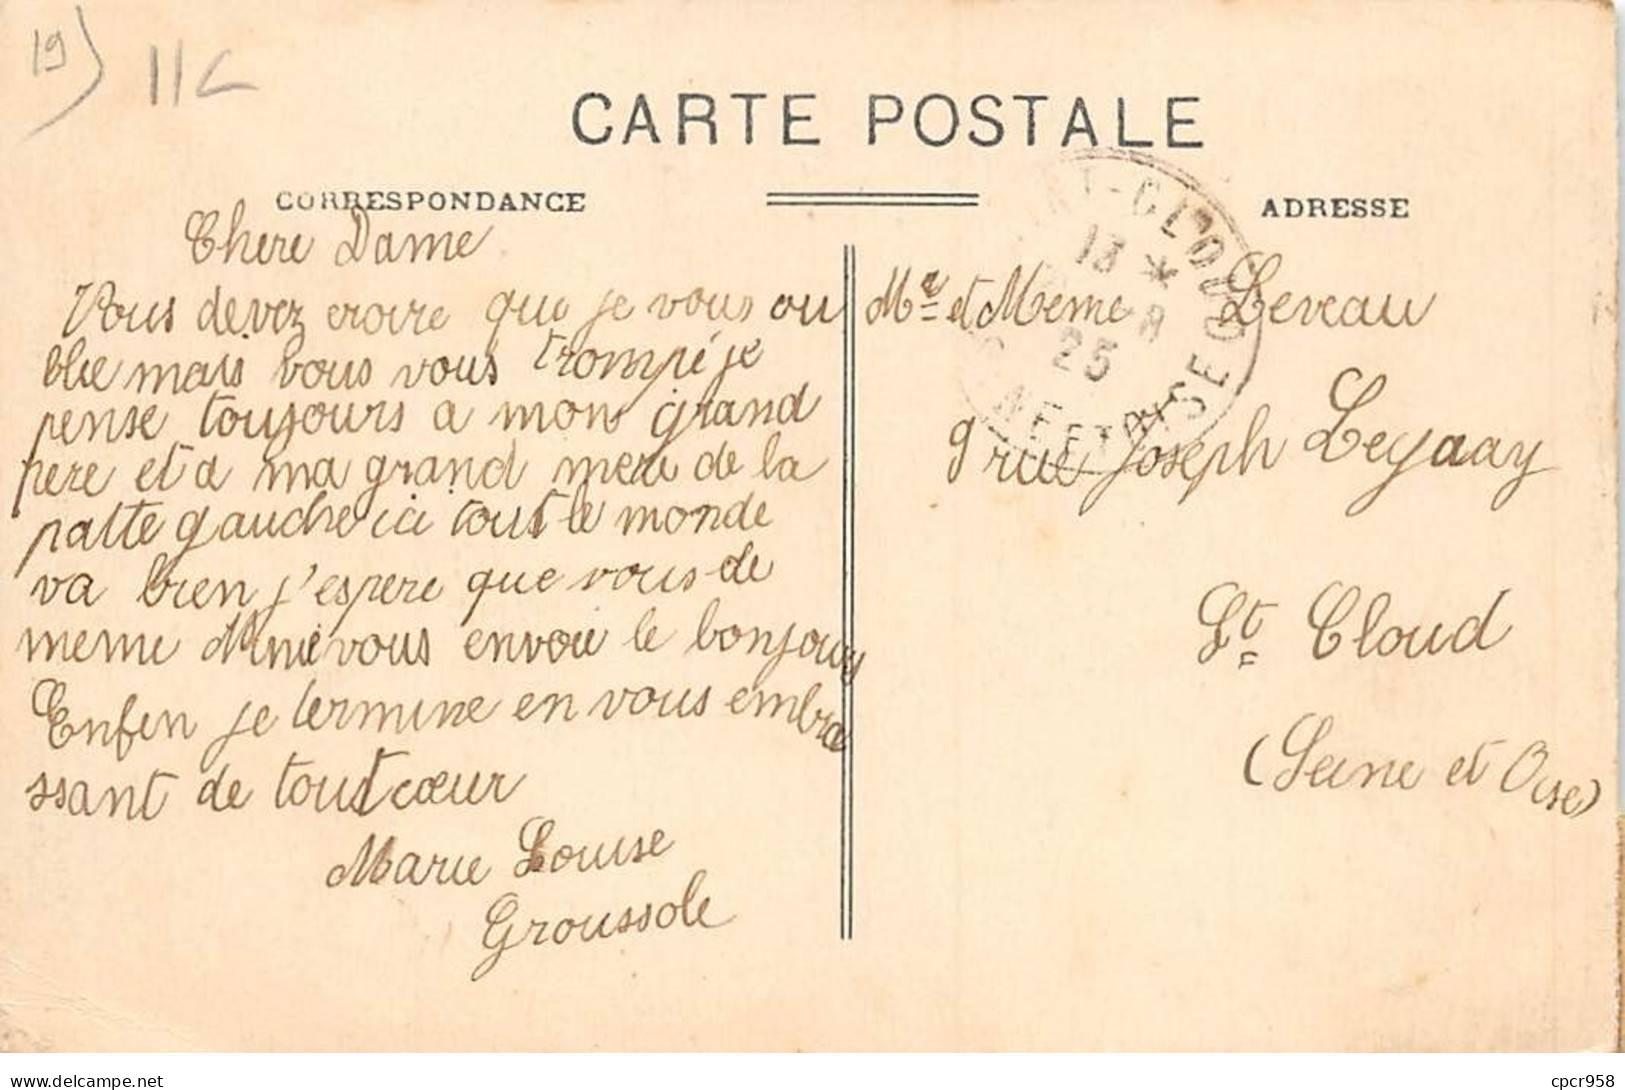 19) 11C
CARTE POSTALE
CORRESPONDANCE
ADRESSE
Chere Dame
Vous devez croire que je vous ou
blie mais vous vous trompé je
pense toujours a mon grand
pere et a ma grand mere de la
patte gauche ici tout le monde
va bien j'espere que vous de
meme Mimi vous envoie le bonjour
Enfin je termine en vous embra
ssant de tout cœur
Marie Louise
Groussole
Mr et Meme Leveau
9 rue Joseph
St Cloud
(Seine et Oise)
T-CLOUD
13 *
25
SEINE ET OISE
Delcampe.net
cpcr958